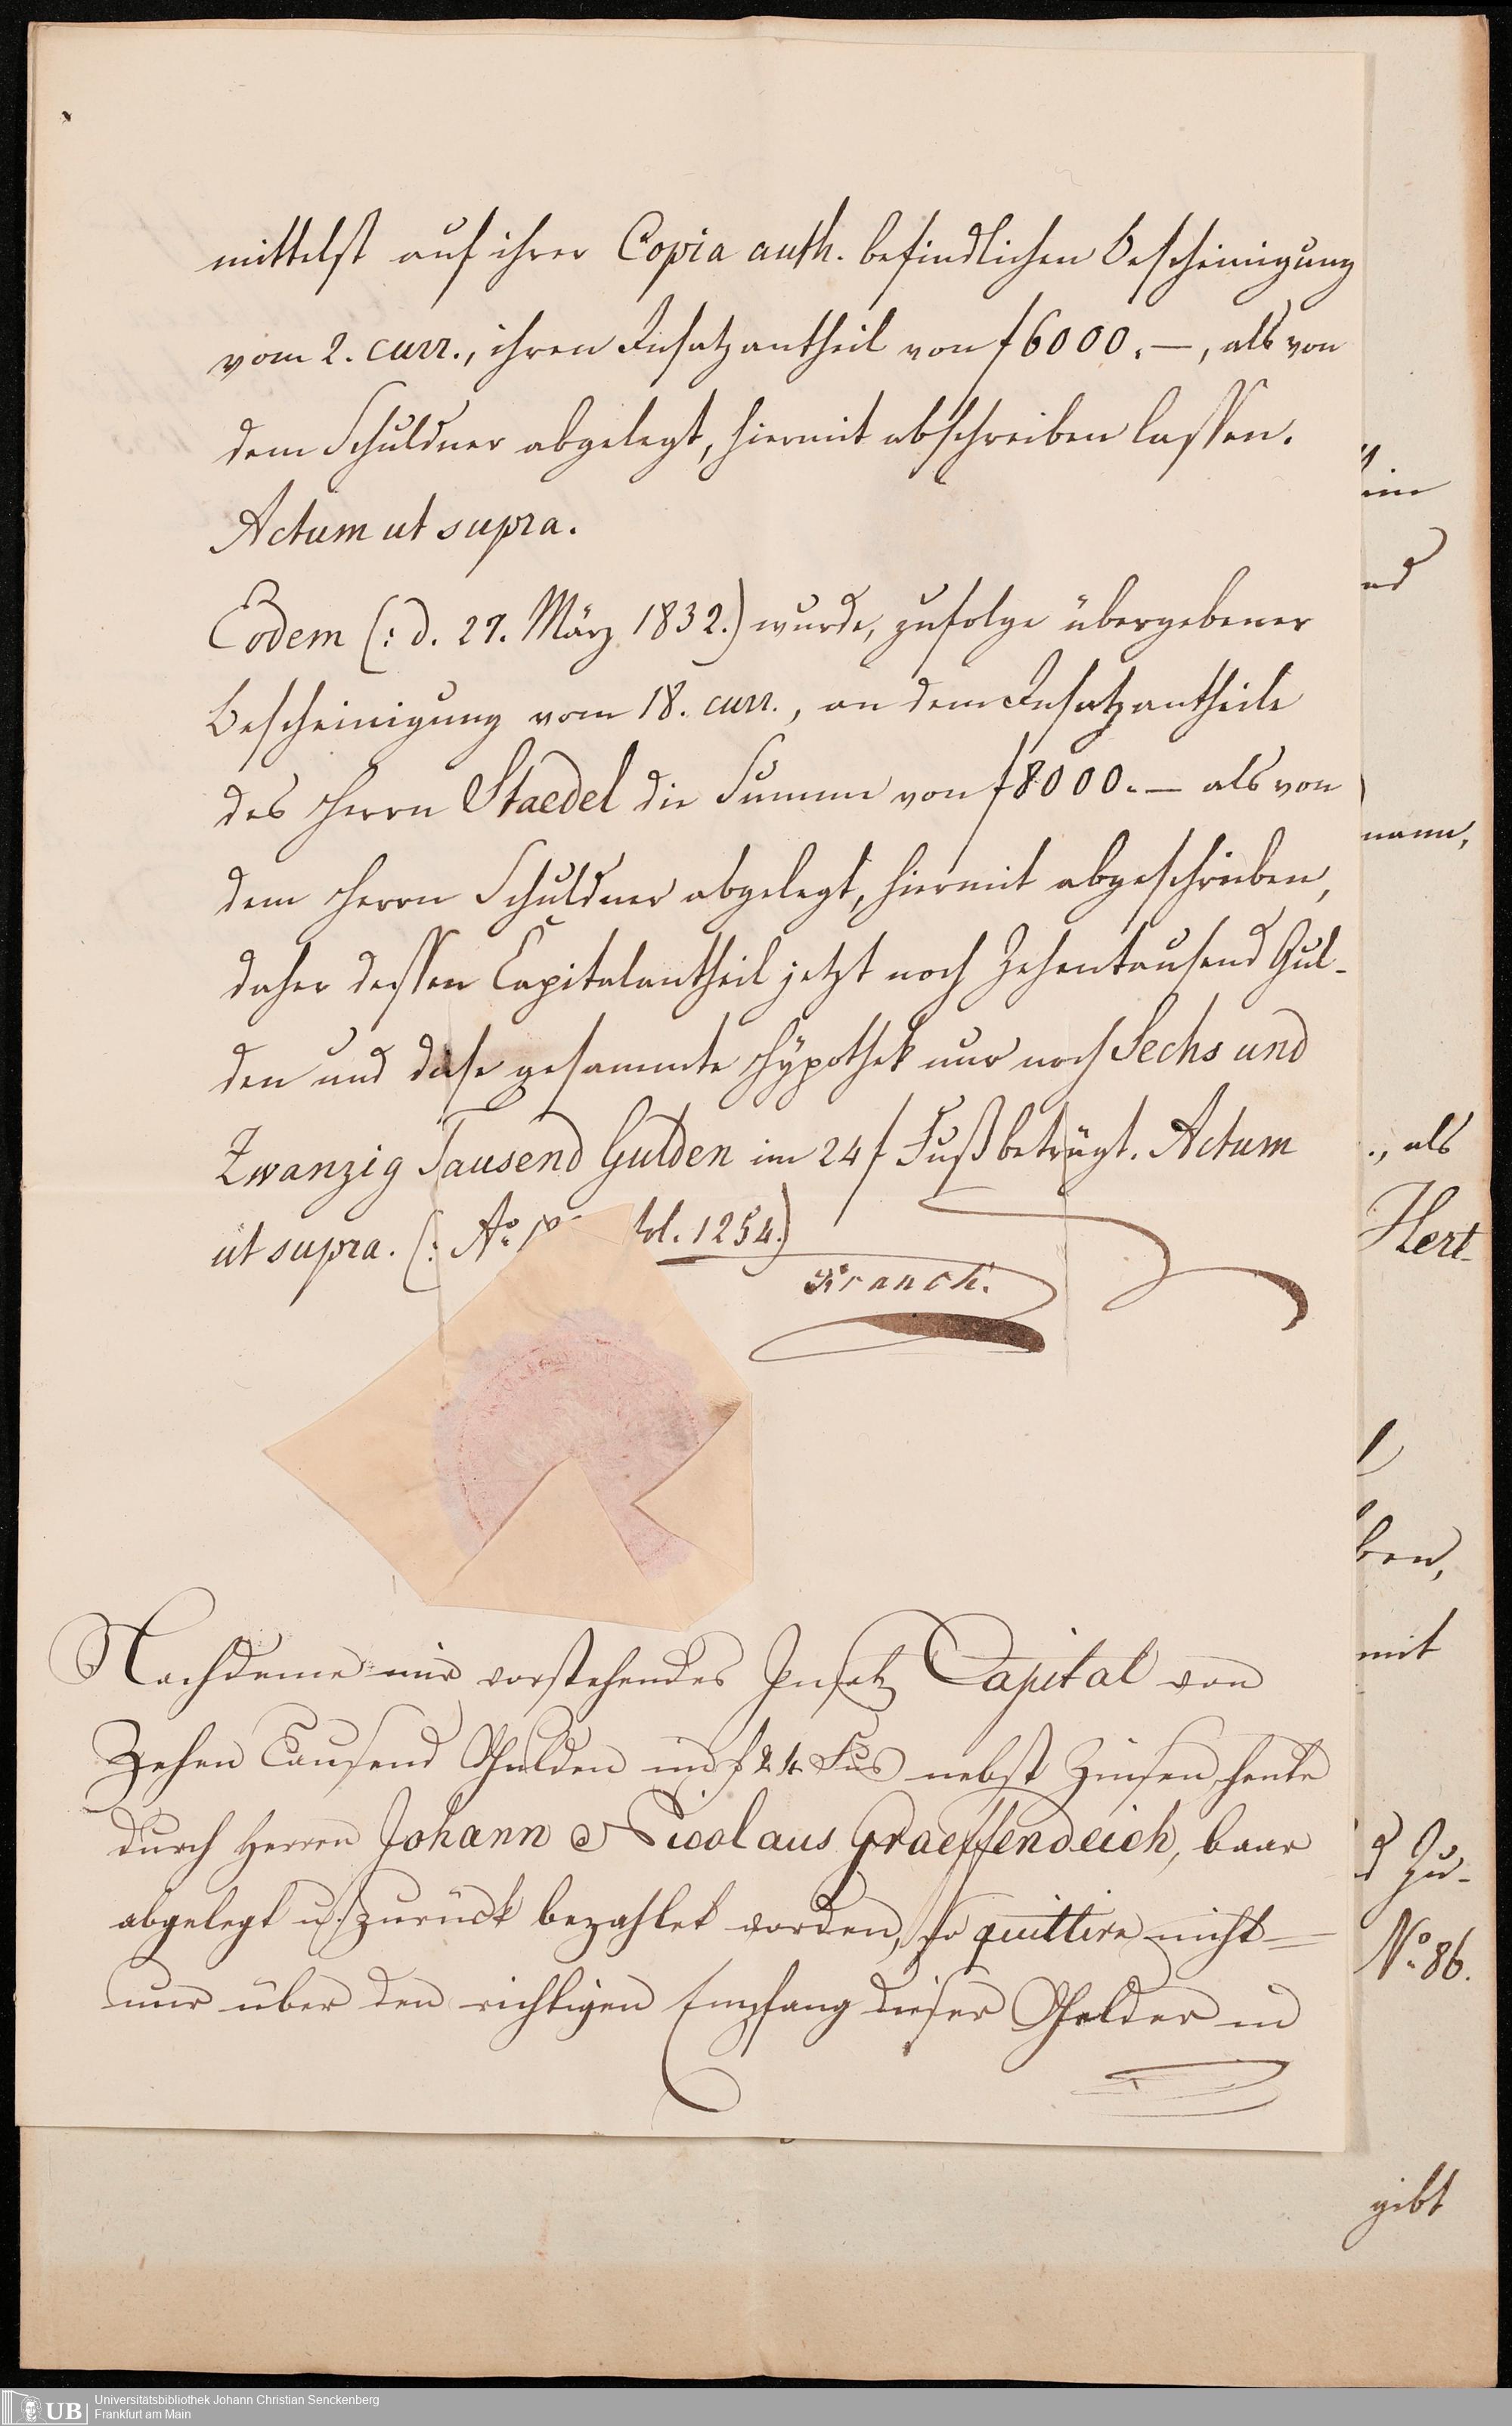 mittelst auf ihrer Copia auth. befindlichen Bescheinigung
vom 2. curr., ihren Insatzantheil von f 6000.—, als von
dem Schuldner abgelegt, hiermit abschreiben lassen.
Actum ut supra.
Eodem (: d. 27. März 1832.) wurde, zufolge übergebener
Bescheinigung vom 18. curr., an dem Insatzantheile
des Herrn Staedel die Summe von f 8000.— als von
dem Herrn Schuldner abgelegt, hiermit abgeschrieben,
daher dessen Capitalantheil jetzt noch Zehentausend Gul-
den und diese gesammte Hÿpothek nur noch Sechs und
Zwanzig Tausend Gulden im 24 f Fuß beträgt. Actum
ut supra. (: Ao. 1254.)
Nachdeme mir vorstehendes Insatz Capital von
Zehen Tausend Gulden im f 24 Fus nebst Zinsen, heute
durch Herren Johann Nicolaus Graeffendeich, baar
abgelegt u. zurück bezahlet worden, so quittire nicht
nur über den richtigen Empfang dieser Gelder in
ein
nd
mann,
., als
Hert-
ben,
mit
d Zu-
No. 86.
gibt
Universitätsbibliothek Johann Christian Senckenberg
UB Frankfurt am Main